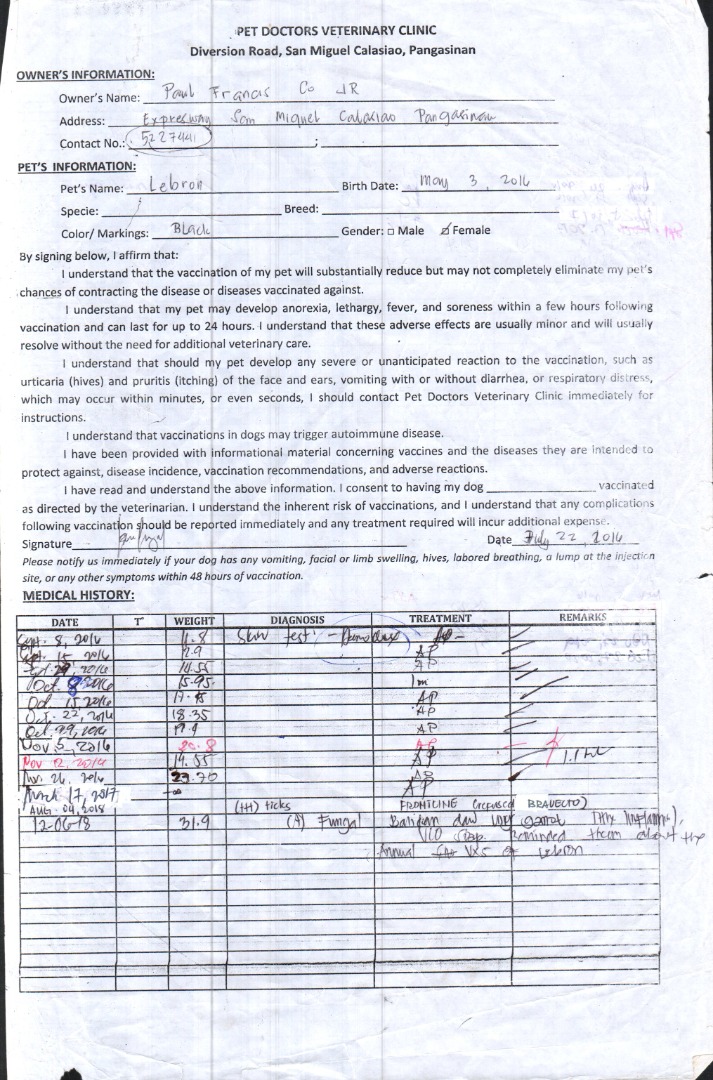 PET DOCTORS VETERINARY CLINIC
Diversion Road, San Miguel Calasiao, Pangasinan
OWNER'S INFORMATION:
Owner's Name: Paul Francis Co JR
Address: Expresway San Miguel Calasiao Pangasinan
Contact No.: 5227441 ;
PET'S INFORMATION:
Pet's Name: Lebron Birth Date: May 3, 2016
Specie: Breed:
Color/ Markings: Black Gender: □ Male ☑ Female
By signing below, I affirm that:
I understand that the vaccination of my pet will substantially reduce but may not completely eliminate my pet's
chances of contracting the disease or diseases vaccinated against.
I understand that my pet may develop anorexia, lethargy, fever, and soreness within a few hours following
vaccination and can last for up to 24 hours. I understand that these adverse effects are usually minor and will usually
resolve without the need for additional veterinary care.
I understand that should my pet develop any severe or unanticipated reaction to the vaccination, such as
urticaria (hives) and pruritis (itching) of the face and ears, vomiting with or without diarrhea, or respiratory distress,
which may occur within minutes, or even seconds, I should contact Pet Doctors Veterinary Clinic immediately for
instructions.
I understand that vaccinations in dogs may trigger autoimmune disease.
I have been provided with informational material concerning vaccines and the diseases they are intended to
protect against, disease incidence, vaccination recommendations, and adverse reactions.
I have read and understand the above information. I consent to having my dog vaccinated
as directed by the veterinarian. I understand the inherent risk of vaccinations, and I understand that any complications
following vaccination should be reported immediately and any treatment required will incur additional expense.
Signature Date July 22, 2016
Please notify us immediately if your dog has any vomiting, facial or limb swelling, hives, labored breathing, a lump at the injection
site, or any other symptoms within 48 hours of vaccination.
MEDICAL HISTORY:
DATE T° WEIGHT DIAGNOSIS TREATMENT REMARKS
Sept. 8, 2016 11.8 Skin test:
Sept. 15 2016 AP
Sept. 29, 2016 14.55 AP
Oct. 8 2016 15.95 1m
Oct. 15, 2016 AP
Oct. 22, 2016 18.35 AP
Oct. 29, 2016 19.9 AP
Nov 5, 2016 20.8 AP
Nov 12, 2016 AP
Nov. 26, 2016 23.70 AP
March 17, 2017 AP
AUG. 09, 2018 (H) ticks FRONTLINE BRAVECTO)
12-06-18 31.9 (A) Fungal
VCO soap. Reminded them about the
Annual of Lebron